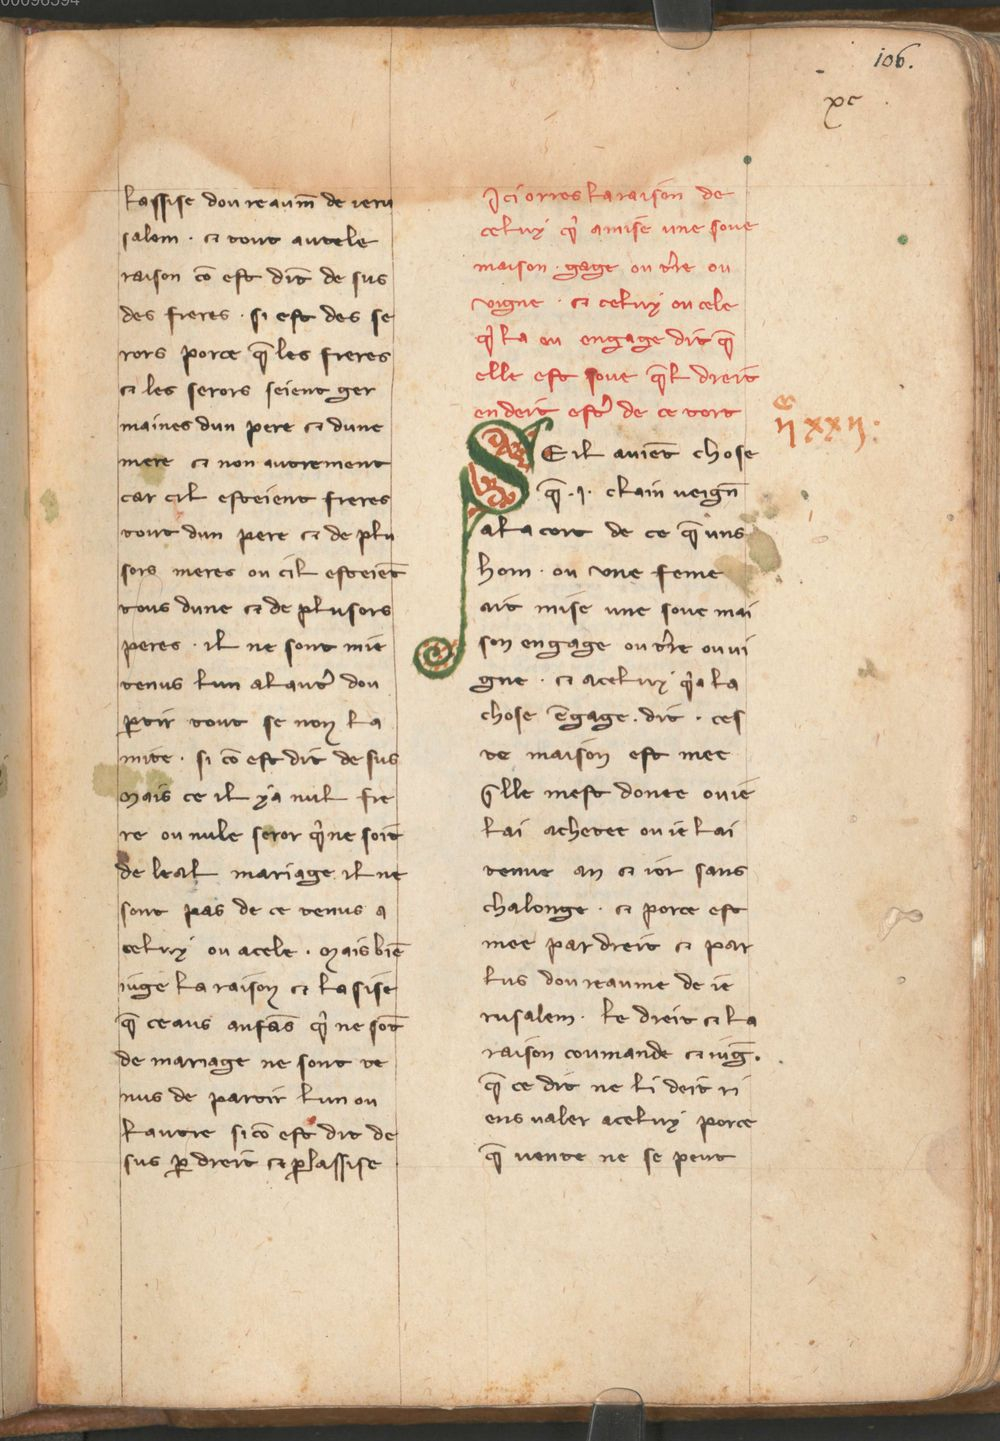 106.
xc
lassise dou reaum̄ de ieru
salem · ⁊ tout autele
raison cō est dit de sus
des freres · si est des se
rors porce q̄ les freres
⁊ les serors seient ger
maines dun pere ⁊ dune
mere ⁊ non autrement
car cil esteient freres
tout dun pere ⁊ de plu
sors meres ou cil esteiēt
tous dune ⁊ de plusors
peres · il ne sont mie
tenus lun al autˀ dou
ꝑtir tout se non la
mite · si cō est dit de sus
Mais ce il ya nul fre
re ou nule seror qˀ ne soiēt
de leal mariage il ne
sont pas de ce tenus a
celuy ou acele · Mais biē
iuge la raison ⁊ lasise
q̄ ceaus anfās qˀ ne sōt
de mariage ne sont te
nus de partir lun ou
lautre si cō est dit de
sus ꝑ dreit ⁊ ꝑ lassise
Ici orres la raison de
celuy qˀ a mise une soue
maison · gage ou tˀre ou
vigne · ⁊ celuy ou cele
qˀ la en engage dit q̄
elle est soue q̄l dreit
en deit estˀ de ce tort
II XXII:
SE il auiēt chose
q̄ · i · clain ueigñ
a la cort de ce q̄ uns
hom · ou une feme
ait mise une soue mai
son engage ou tˀre ou ui
gne · ⁊ a celuy qˀ a la
chose ēgage · dit · ces
te maison est mee
q̄lle mest donee ou ie
lai achetee ou ie lai
tenue an ⁊ ior sans
chalonge · ⁊ porce est
mee par dreit ⁊ par
lus dou reaume de ie
rusalem · le dreit ⁊ la
raison coumande ⁊ iug̃ ·
q̄ ce dit ne li deit ri
ens ualer a celuy porce
q̄ uente ne se peut